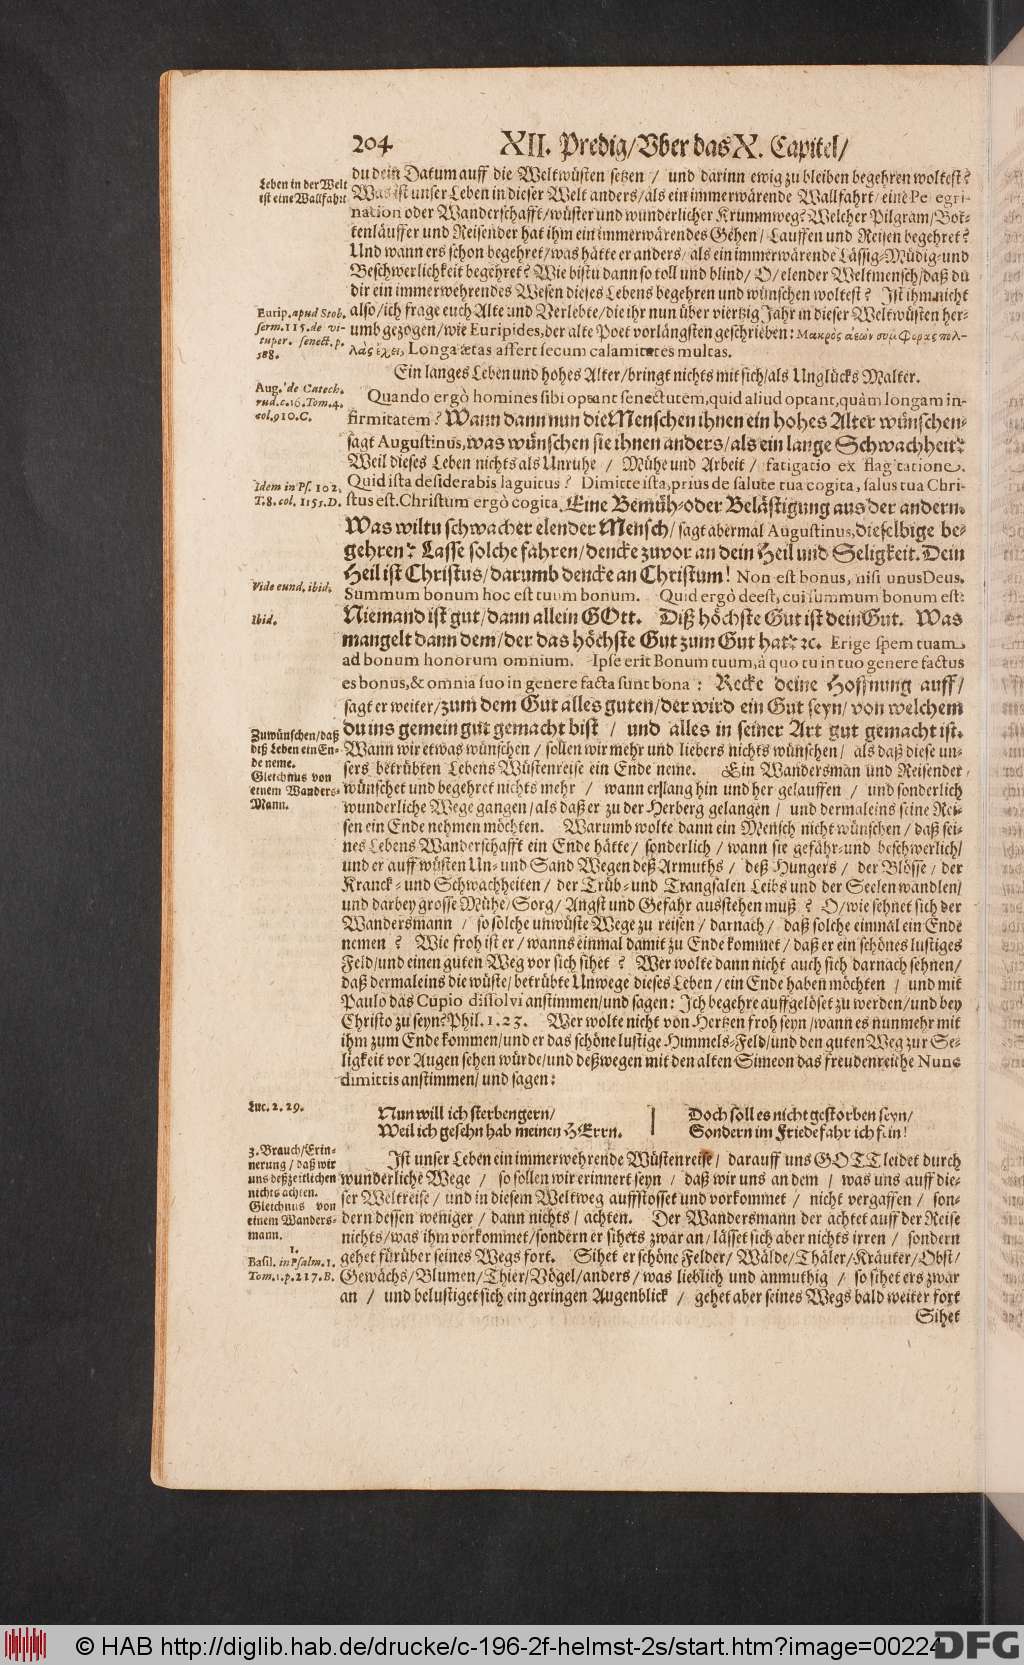 204 XII. Predig/Vber das X. Capitel/
du dein Datum auff die Weltwüsten setzen / und darinn ewig zu bleiben begehren woltest?
Leben in der Welt
ist eine Wallfahrt
Was ist unser Leben in dieser Welt anders/als ein immerwärende Wallfahrt/eine Peregri-
nation oder Wanderschafft/wüster und wunderlicher Krummweg? Welcher Pilgram/Bot-
tenläuffer und Reisender hat ihm ein immerwärendes Gehen/Lauffen und Reisen begehret?
Und wann ers schon begehret/was hätte er anders/als ein immerwärende Lässig-Müdig-und
Beschwerlichkeit begehret? Wie bistu dann so toll und blind/O/elender Weltmensch/daß du
dir ein immerwehrendes Wesen dieses Lebens begehren und wünschen woltest? Ist ihm nicht
Eurip. apud Stob.
serm. 115. de vi-
tuper. senect. p.
588.
also/ich frage euch Alte und Verlebte/die ihr nun über viertzig Jahr in dieser Weltwüsten her-
umb gezogen/wie Euripides, der alte Poet vorlängsten geschrieben: Μακρὸς ἀεὼν συμφορὰς πολ-
λὰς ἔχει, Longa ætas affert secum calamitates multas.
Ein langes Leben und hohes Alter/bringt nichts mit sich/als Unglücks Malter.
Aug. de Catech.
rud. c. 16. Tom. 4.
col. 910. C.
Quando ergò homines sibi optant senectutem, quid aliud optant, quàm longam in-
firmitatem? Wann dann nun die Menschen ihnen ein hohes Alter wünschen-
sagt Augustinus, was wünschen sie ihnen anders/als ein lange Schwachheit?
Weil dieses Leben nichts als Unruhe / Mühe und Arbeit / fatigatio ex flagitatione.
Idem in Ps. 102.
T. 8. col. 1155. D.
Quid ista desiderabis languitus? Dimitte ista, prius de salute tua cogita, salus tua Chri-
stus est. Christum ergò cogita. Eine Bemüh-oder Belästigung aus der andern.
Was wiltu schwacher elender Mensch/sagt abermal Augustinus, dieselbige be-
gehren? Lasse solche fahren/dencke zuvor an dein Heil und Seligkeit. Dein
Heil ist Christus/darumb dencke an Christum! Non est bonus, nisi unus Deus.
Vide eund. ibid.
Summum bonum hoc est tuum bonum. Quid ergò deest, cui summum bonum est?
Ibid.
Niemand ist gut/dann allein GOtt. Diß höchste Gut ist dein Gut. Was
mangelt dann dem/der das höchste Gut zum Gut hat? ꝛc. Erige spem tuam
ad bonum honorum omnium. Ipse erit Bonum tuum, à quo tu in tuo genere factus
es bonus, & omnia suo in genere facta sunt bona: Recke deine Hoffnung auff/
sagt er weiter/zum dem Gut alles guten/der wird ein Gut seyn/von welchem
du ins gemein gut gemacht bist / und alles in seiner Art gut gemacht ist.
Zuwünschen/daß
diß Leben ein En-
de neme.
Gleichnus von
einem Wanders-
Mann.
Wann wir etwas wünschen / sollen wir mehr und liebers nichts wünschen / als daß diese un-
sers betrübten Lebens Wüstenreise ein Ende neme. Ein Wandersman und Reisender,
wünschet und begehret nichts mehr / wann er lang hin und her gelauffen / und sonderlich
wunderliche Wege gangen/als daß er zu der Herberg gelangen / und dermaleins seine Rei-
sen ein Ende nehmen möchten. Warumb wolte dann ein Mensch nicht wünschen / daß sei-
nes Lebens Wanderschafft ein Ende hätte / sonderlich / wann sie gefähr-und beschwerlich/
und er auff wüsten Un- und Sand Wegen deß Armuths / deß Hungers / der Blösse / der
Kranck- und Schwachheiten / der Trüb-und Trangsalen Leibs und der Seelen wandlen/
und darbey grosse Mühe/Sorg/Angst und Gefahr ausstehen muß? O/wie sehnet sich der
Wandersmann / so solche unwüste Wege zu reisen / darnach / daß solche einmal ein Ende
nemen? Wie froh ist er/wanns einmal damit zu Ende kommet/daß er ein schönes lustiges
Feld/und einen guten Weg vor sich sihet? Wer wolte dann nicht auch sich darnach sehnen/
daß dermaleins die wüste/betrübte Unwege dieses Leben/ein Ende haben möchten / und mit
Paulo das Cupio dissolvi anstimmen/und sagen: Ich begehre auffgelöset zu werden/und bey
Christo zu seyn? Phil. 1. 23. Wer wolte nicht von Hertzen froh seyn/wann es nunmehr mit
ihm zum Ende kommen/und er das schöne lustige Himmels-Feld/und den guten Weg zur Se-
ligkeit vor Augen sehen würde/und deßwegen mit den alten Simeon das freudenreiche Nunc
dimittis anstimmen/und sagen:
Luc. 2. 29.
Nun will ich sterben gern/
Weil ich gesehn hab meinen HErrn.
Doch soll es nicht gestorben seyn/
Sondern im Friede fahr ich fein!
3. Brauch/Erin-
nerung/daß wir
uns deß zeitlichen
nichts achten.
Gleichnus von
einem Wanders-
mann.
1.
Basil. in Psalm. 1.
Tom. 1. p. 217. B.
Ist unser Leben ein immerwehrende Wüstenreise/ darauff uns GOTT leidet durch
wunderliche Wege / so sollen wir erinnert seyn / daß wir uns an dem / was uns auff die-
ser Weltreise / und in diesem Weltweg auffstosset und vorkommet / nicht vergaffen / son-
dern dessen weniger / dann nichts / achten. Der Wandersmann der achtet auff der Reise
nichts/was ihm vorkommet/sondern er sihets zwar an/lässet sich aber nichts irren / sondern
gehet fürüber seines Wegs fort. Sihet er schöne Felder/Wälde/Thäler/Kräuter/Obst/
Gewächs/Blumen/Thier/Vögel/anders/was lieblich und anmuthig / so sihet ers zwar
an / und belustiget sich ein geringen Augenblick / gehet aber seines Wegs bald weiter fort
Sihet
© HAB http://diglib.hab.de/drucke/c-196-2f-helmst-2s/start.htm?image=00224
DFG